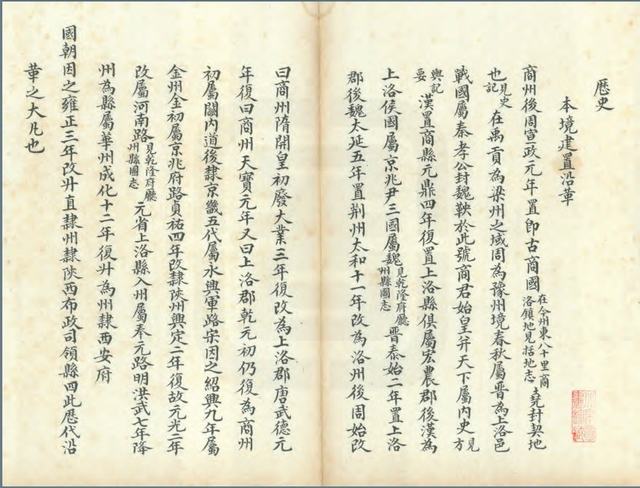 歷史
本境建置沿革
商州後周宣政元年置即古商國在今州東八十里商洛鎮地見括地志堯封契地
也見史記在禹貢為梁州之域周為豫州境春秋屬晉為上洛邑
戰國屬秦孝公封魏鞅於此號商君始皇并天下屬內史見方
輿記要漢置商縣元鼎四年復置上洛縣俱屬宏農郡後漢為
上洛侯國屬京兆尹三國屬魏見乾隆府廳州縣圖志晉泰始二年置上洛
郡後魏太延五年置荆州太和十一年改為洛州後周始改
曰商州隋開皇初廢大業三年復改為上洛郡唐武德元
年復曰商州天寶元年又曰上洛郡乾元初仍復為商州
初屬關內道後隸京畿五代屬永興軍路宋因之紹興九年屬
金州金初屬京兆府路貞祐四年改隸陝州興定二年復故元光二年
改屬河南路見乾隆府廳州縣圖志元省上洛縣入州屬奉元路明洪武七年降
州為縣屬華州成化十二年復升為州隸西安府
國朝因之雍正三年改升直隸州隸陝西布政司領縣四此歷代沿
革之大凡也